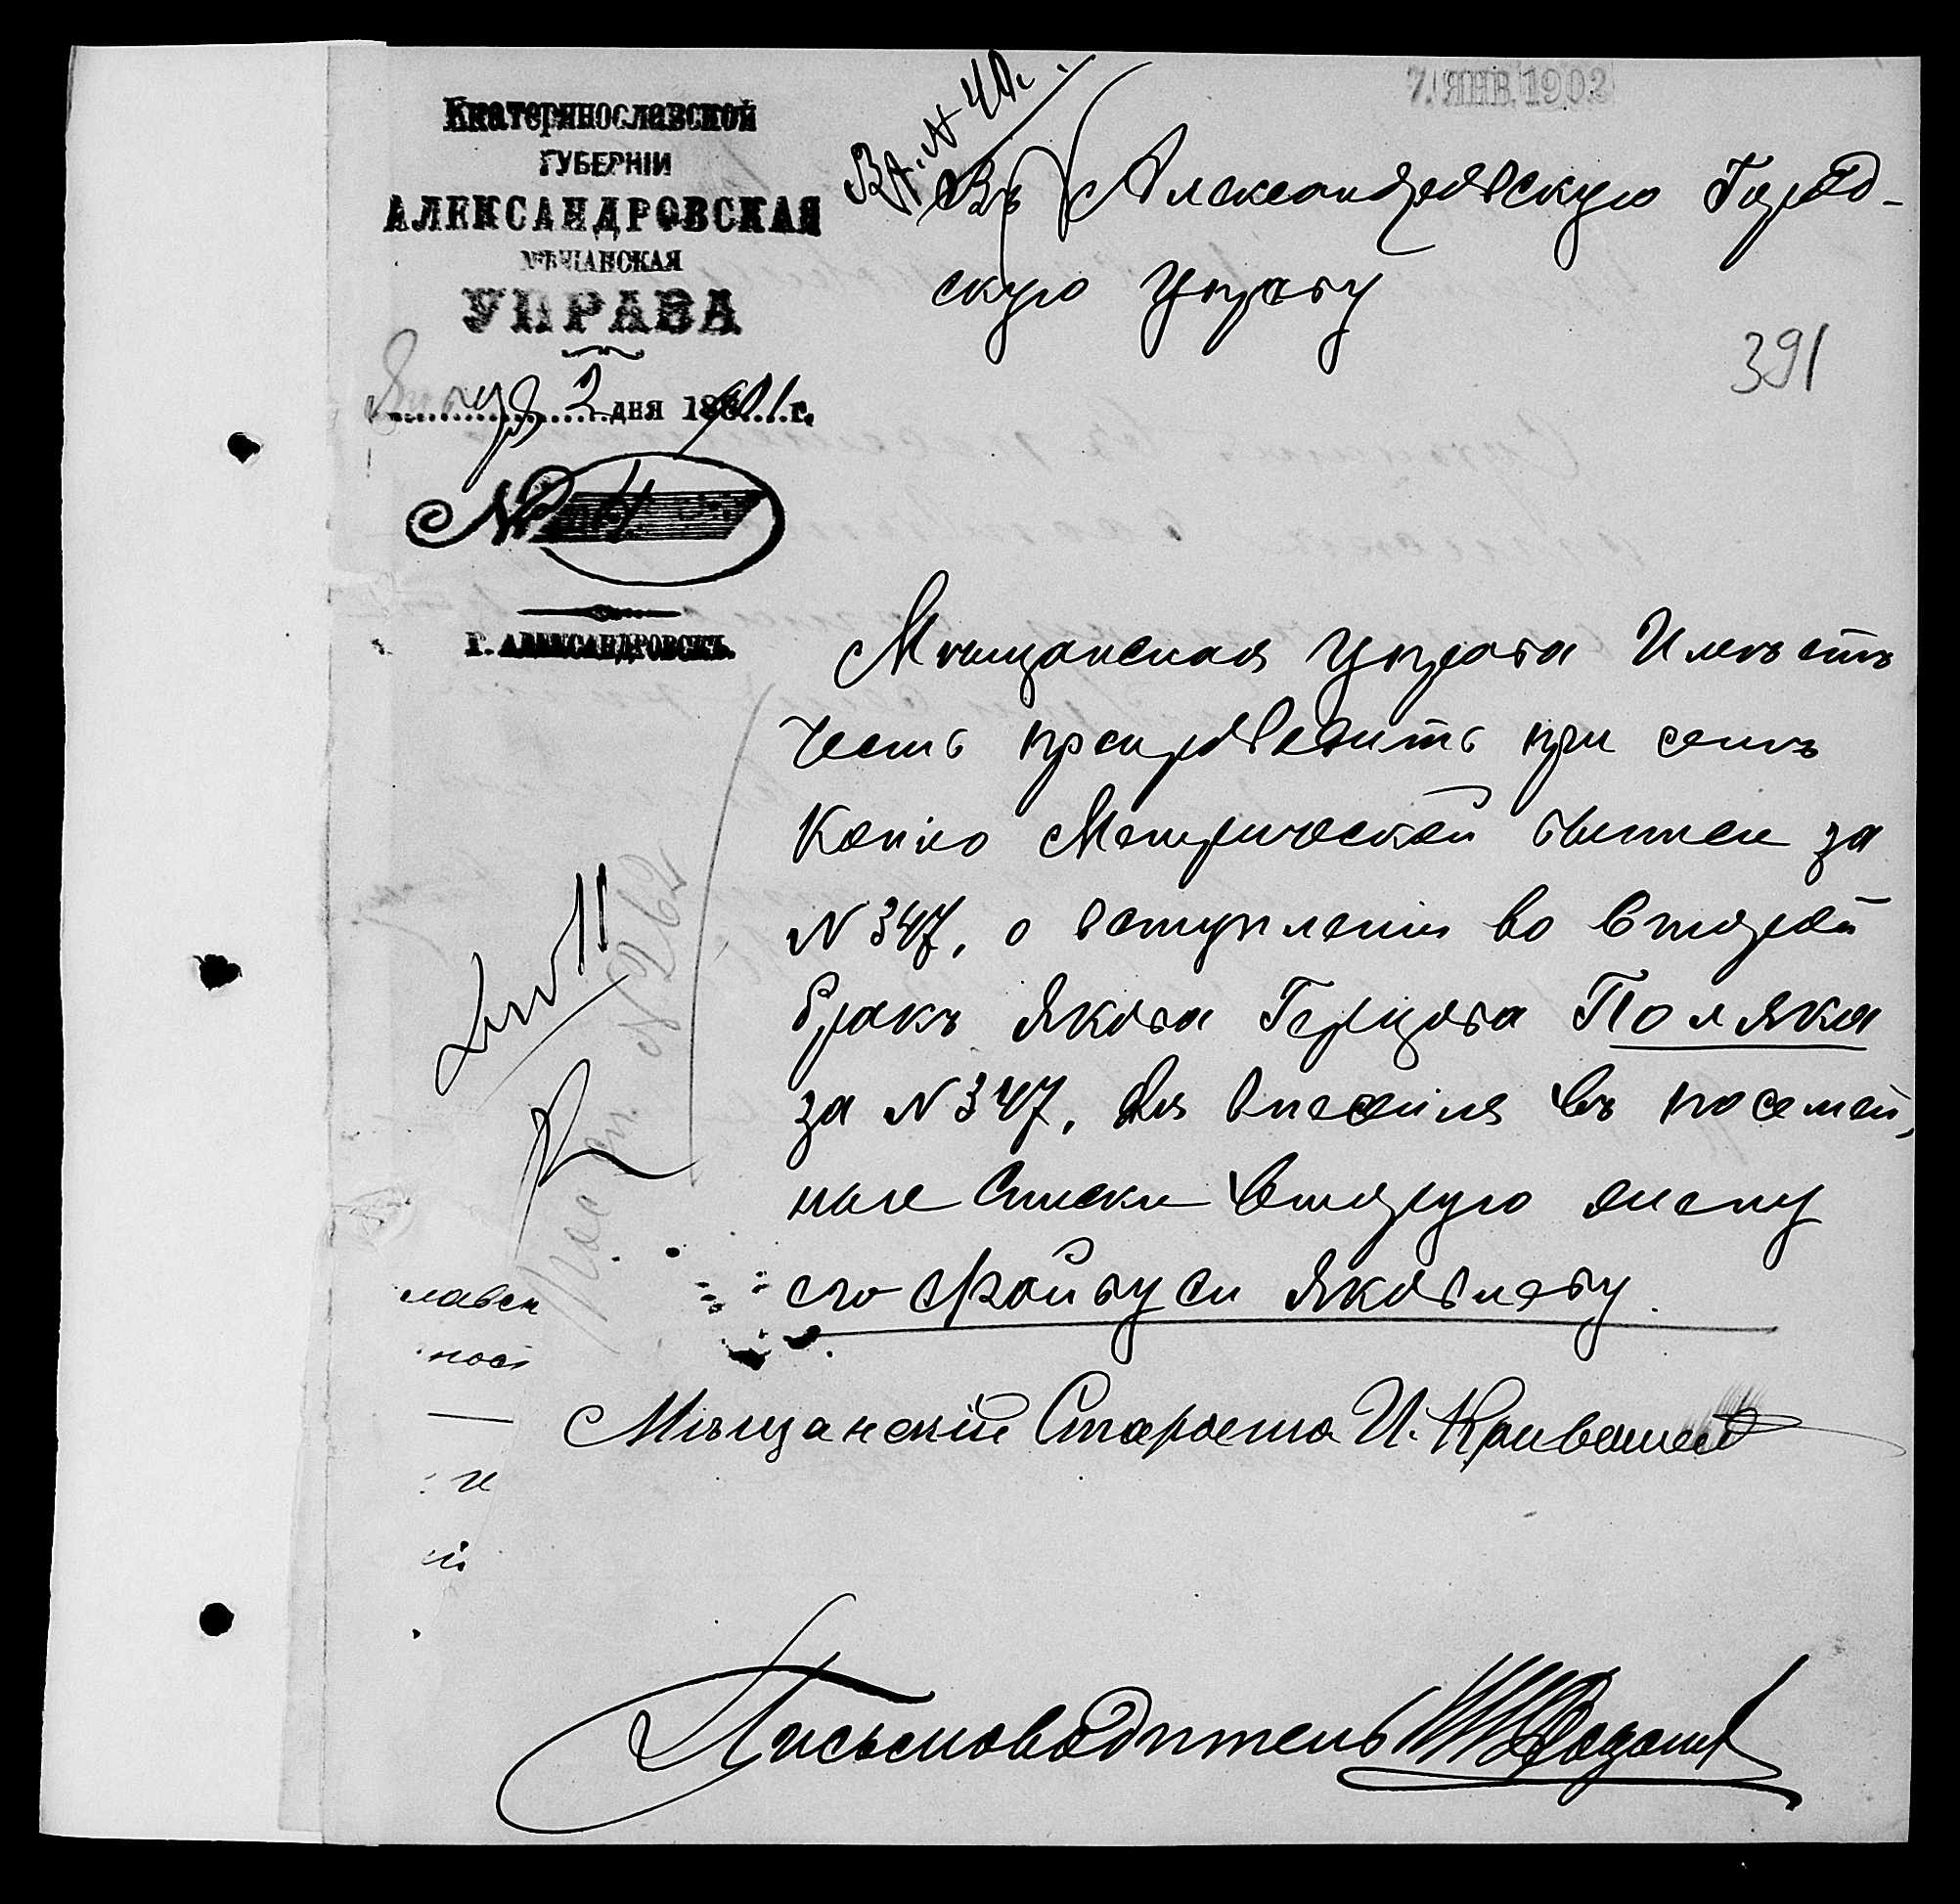 7. ЯНВ. 1902
Екатеринославской
ГУБЕРНІИ
АЛЕКСАНДРОВСКАЯ
МѢЩАНСКАЯ
УПРАВА
2 дня 1
г.
№
Г. АЛЕКСАНДРОВСКЪ.
Въ Александровскую Город-
скую Управу
391
Мѣщанская Управа Имѣетъ
честь препроводить при семъ
Копію Метрической выписи за
N 347, о вступленіи во второй
бракъ Якова Герцова Поляка
за N 347, для внесенія въ посемей,
ные Списки вторую жену
его Фейгу Яковлеву.
N 262
лавск
Мѣщанскій Староста И.
Письмоводитель